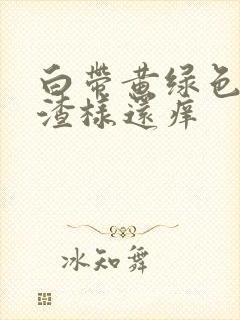 白带黄绿色
渣樣還痒
冰知舞